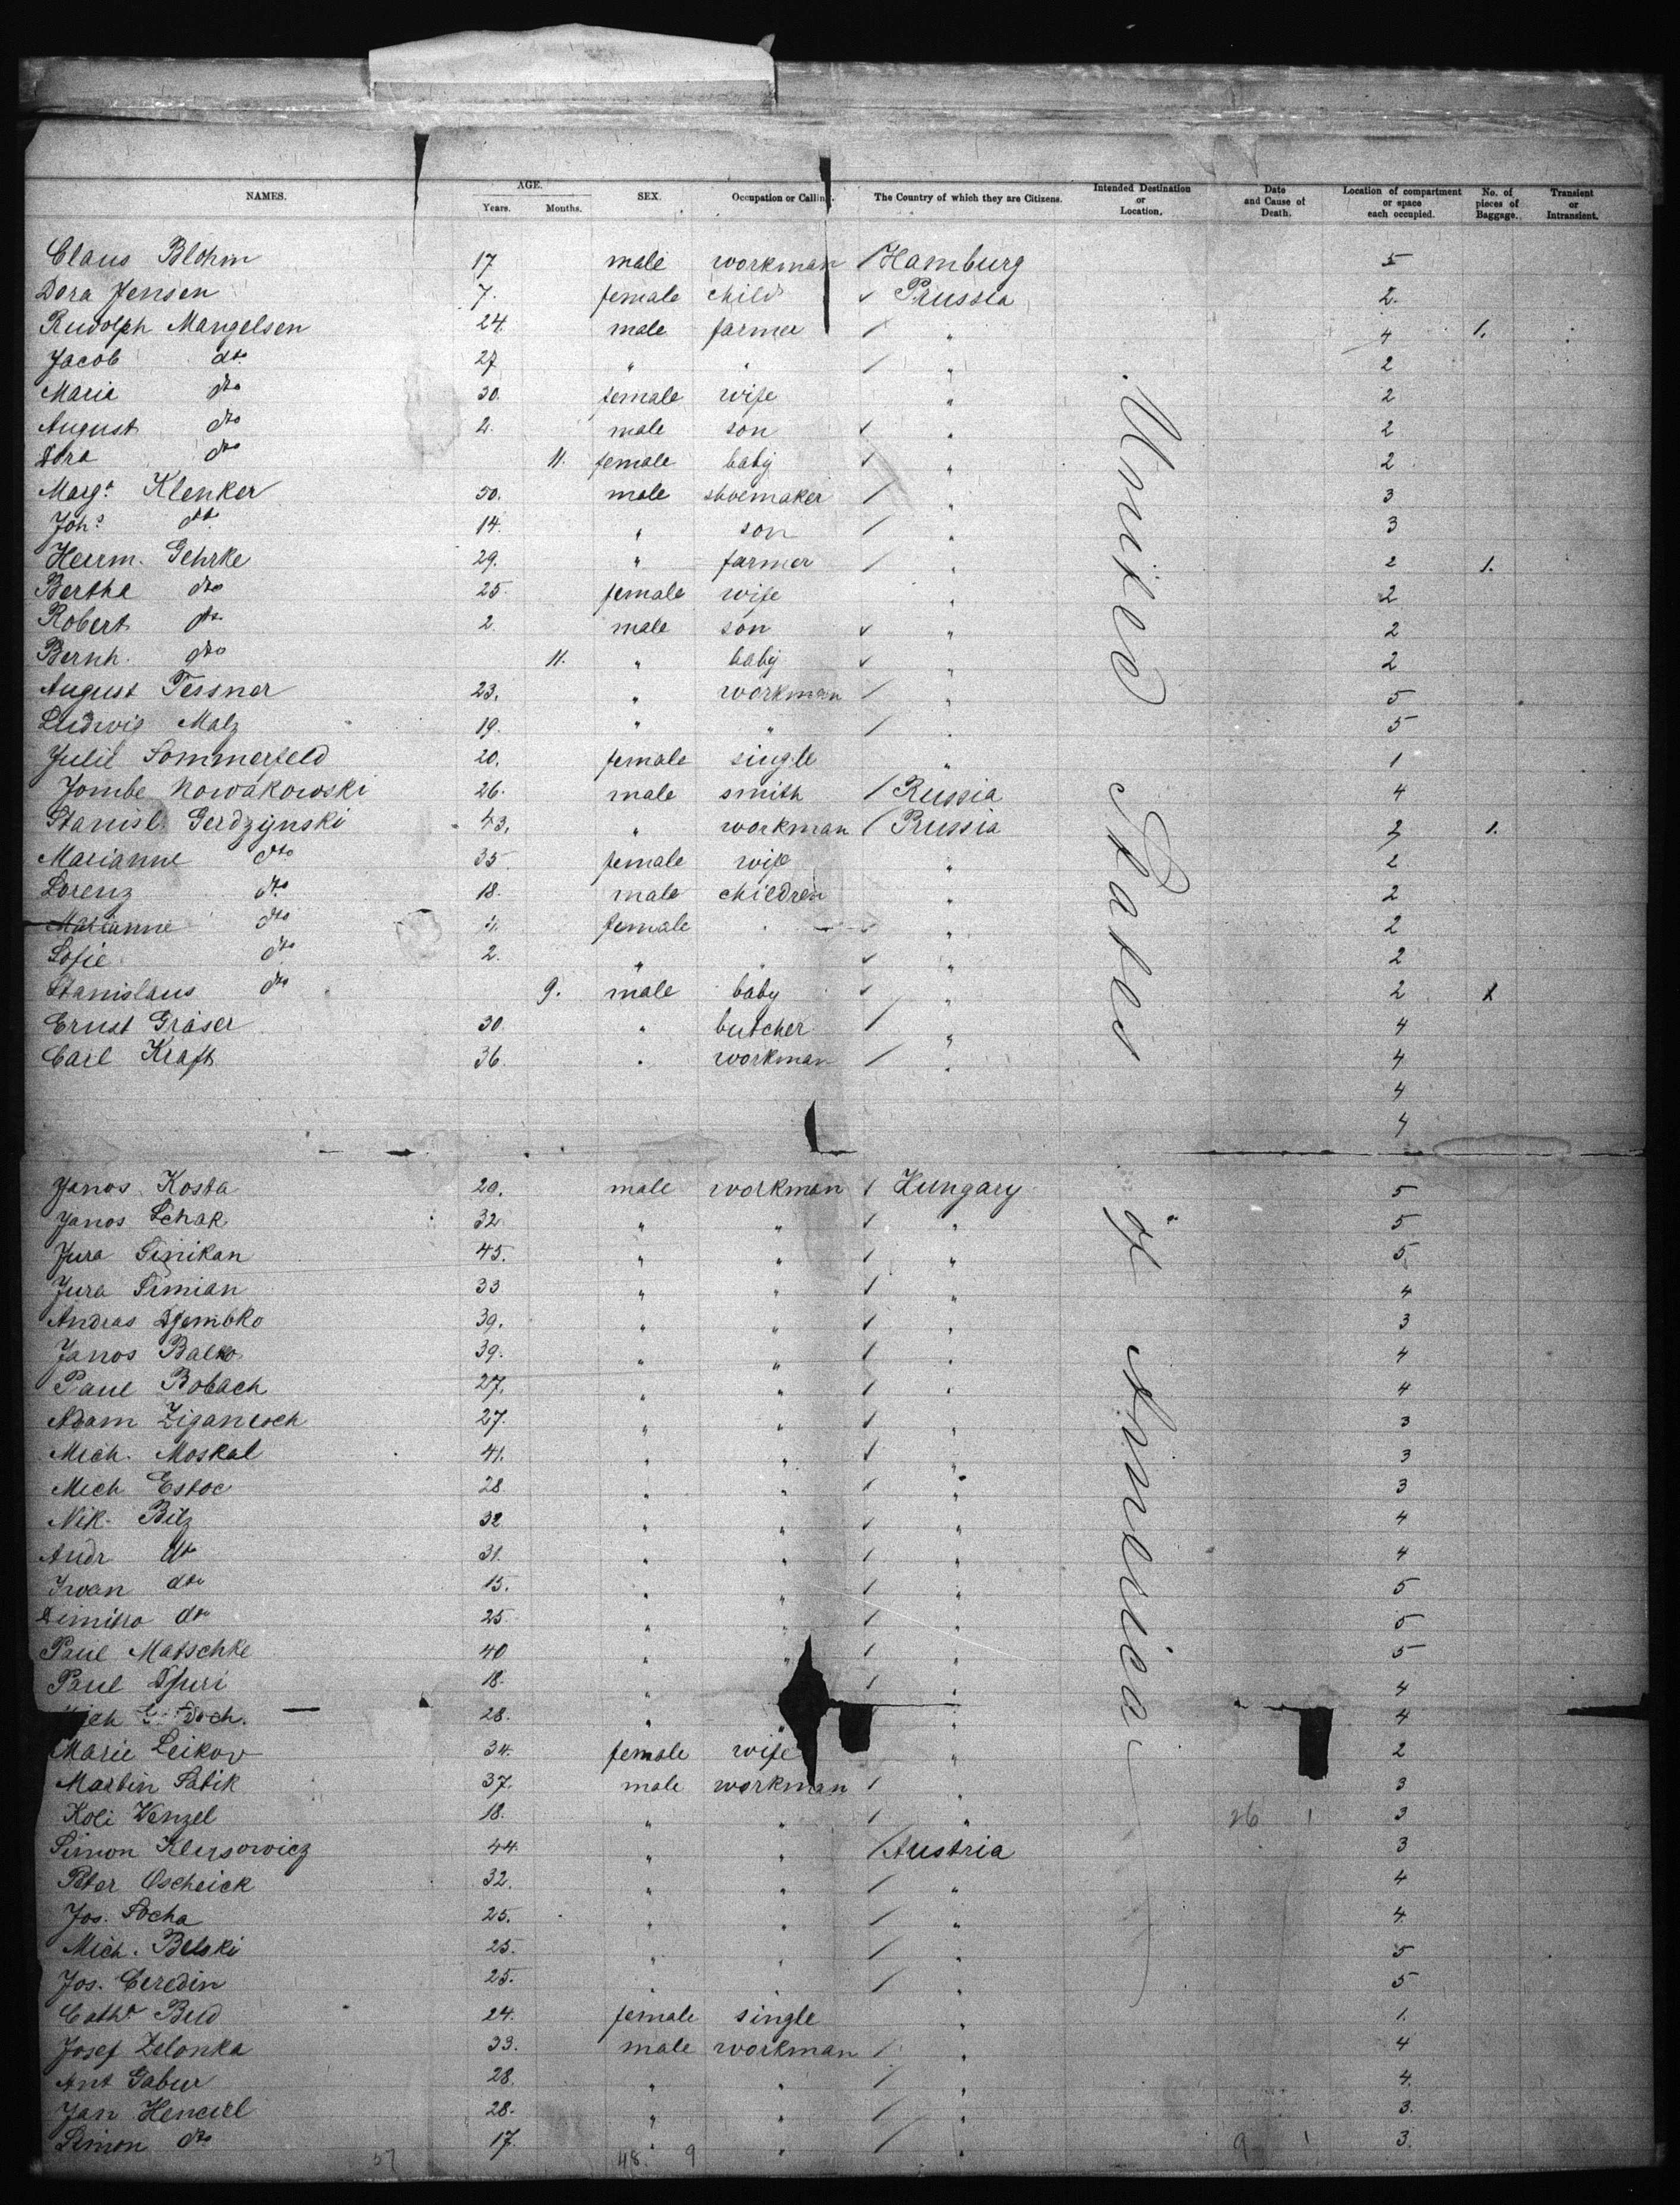 NAMES. AGE. Years. Months. SEX. Occupation or Calling. The Country of which they are Citizens. Intended Destination or Location. Date and Cause of Death. Location of compartment or space each occupied. No. of pieces of Baggage. Transient or Intransient.
Claus Blohm 17 male workman / Hamburg 5
Dora Jensen 7. female child ✓ Prussia 2.
Rudolph Mangelsen 24. male farmer / " 4 1.
Jacob dto 27 " " / " 2
Maria dto 30. female wife " 2
August dto 2. male son ✓ " 2
Dora dto 11. female baby ✓ " 2
Margt Klenker 50. male shoemaker / " 3
Johs dto 14. " son / " 3
Herrm. Gehrke 29. " farmer / " 2 1.
Bertha dto 25. female wife " 2
Robert dto 2. male son ✓ " 2
Bernh. dto 11. " baby ✓ " 2
August Tessner 23. " workman / " 5
Ludwig Malz 19. " " / " 5
Julie Sommerfeld 20. female single " 1
Jombe Nowakowski 26. male smith / Russia 4
Stanisl. Gerdzynski 43. " workman / Prussia 2 1.
Marianne dto 35 female wife " 2
Lorenz dto 18. male children " 2
Marianne dto 4. female " " 2
Sofie dto 2. " " ✓ " 2
Stanislaus dto 9. male baby ✓ " 2
Ernst Gräser 30. " butcher / " 4
Carl Kraft 36. " workman / " 4
4
4
Janos Kosta 20. male workman / Hungary 5
Janos Schak 32. " " / " 5
Jura Sinikan 45. " " / " 5
Jura Simian 33 " " / " 4
Andras Dzembko 39. " " / " 3
Janos Balko 39. " " / " 4
Paul Bobach 27. " " / " 4
Adam Ziganesch 27. " " / " 3
Mich. Moskal 41. " " / " 3
Mich Estoc 28 " " / " 3
Nik. Bilz 32 " " / " 4
Andr dto 31. " " / " 4
Iwan dto 15. " " / " 5
Dimitro dto 25. " " / " 5
Paul Matschke 40 " " / " 5
Paul Dzuri 18. " " / " 4
28. " " " 4
Marie Leikov 34. female wife " 2
Martin Sabik 37. male workman / " 3
Koli Wenzel 18. " " / " 26 1 3
Simon Klusowicz 44. " " / Austria 3
Peter Oscheick 32. " " / " 4
Jos. Socha 25. " " / " 4.
Mich. Belski 25. " " / " 5
Jos. Ceredin 25. " " / " 5
Catha Bud 24. female single " 1.
Josef Zelonka 33. male workman / " 4
Ant Gabur 28. " " / " 4.
Jan Hencirl 28. " " / " 3.
Simon dto 17. " " / " 9 1 3.
57 48. 9
United States of America